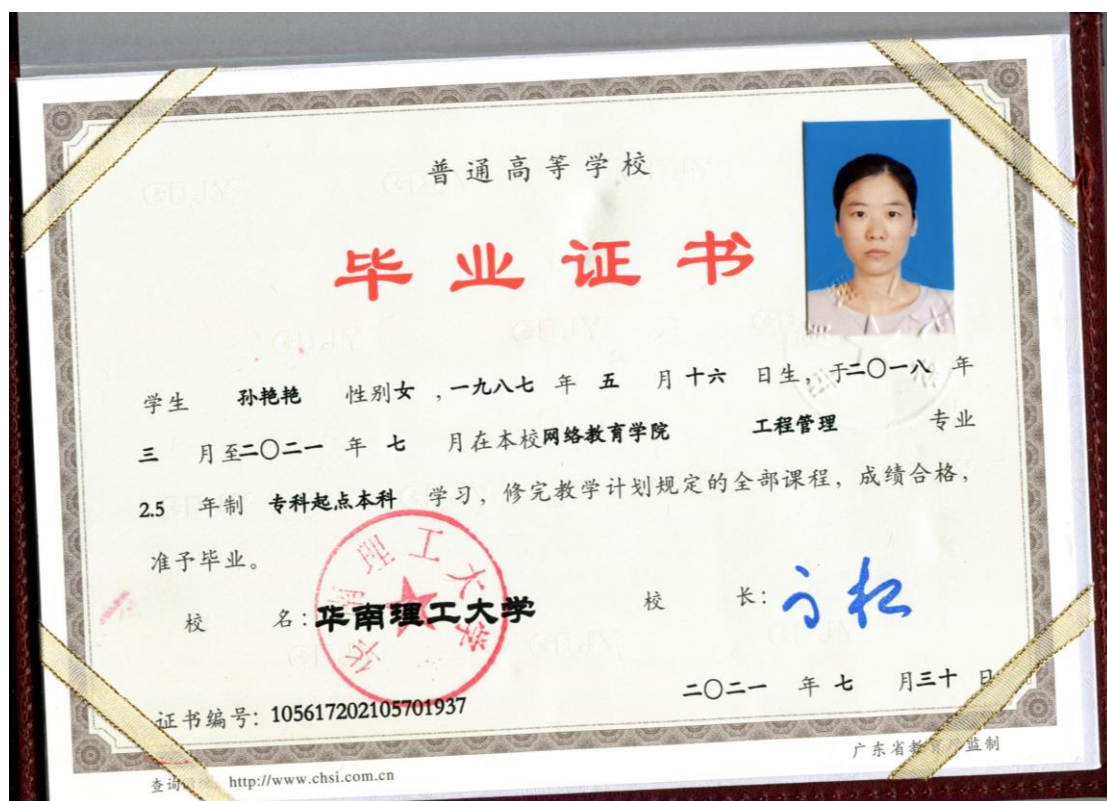 普通高等学校
毕业证书
学生 孙艳艳 性别女，一九八七 年 五 月十六 日生，于二〇一八 年
三 月至二〇二一 年 七 月在本校网络教育学院 工程管理 专业
2.5 年制 专科起点本科 学习，修完教学计划规定的全部课程，成绩合格，
准予毕业。
华南理工大学
校 名：华南理工大学 校 长：
二〇二一 年 七 月三十 日
证书编号：105617202105701937
广东省教 监制
查询 http://www.chsi.com.cn